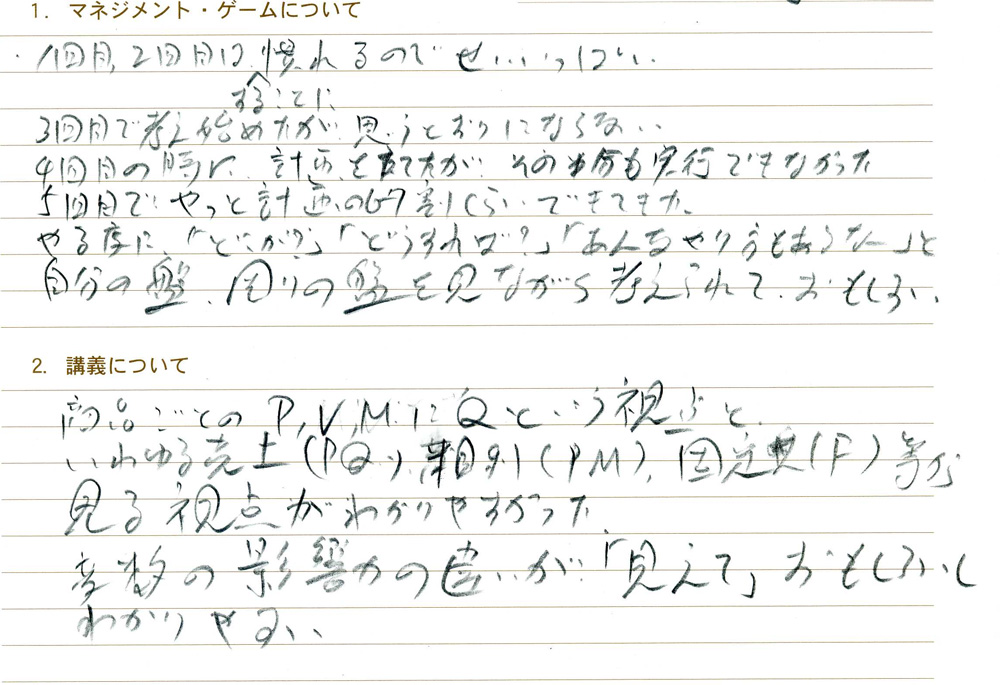 1. マネジメント・ゲームについて
・1回目、2回目は、慣れるのでせいいっぱい。
することに
3回目で考え始めたが、思うとおりにならない
4回目の時に、計画を立てたが、その半分も実行できなかった
5回目で、やっと計画の6-7割くらいできてきた。
やる度に、「どこが?」「どうすれば?」「あんなやり方もあるなー」と
自分の盤、周りの盤を見ながら考えられて、おもしろい、
2. 講義について
商品ごとのP,V,MにQという視点と、
いわゆる売上(PQ)、粗利(PM)、固定費(F)等を
見る視点がわかりやすかった。
変数の影響力の違いが、「見えて」おもしろいし
わかりやすい、